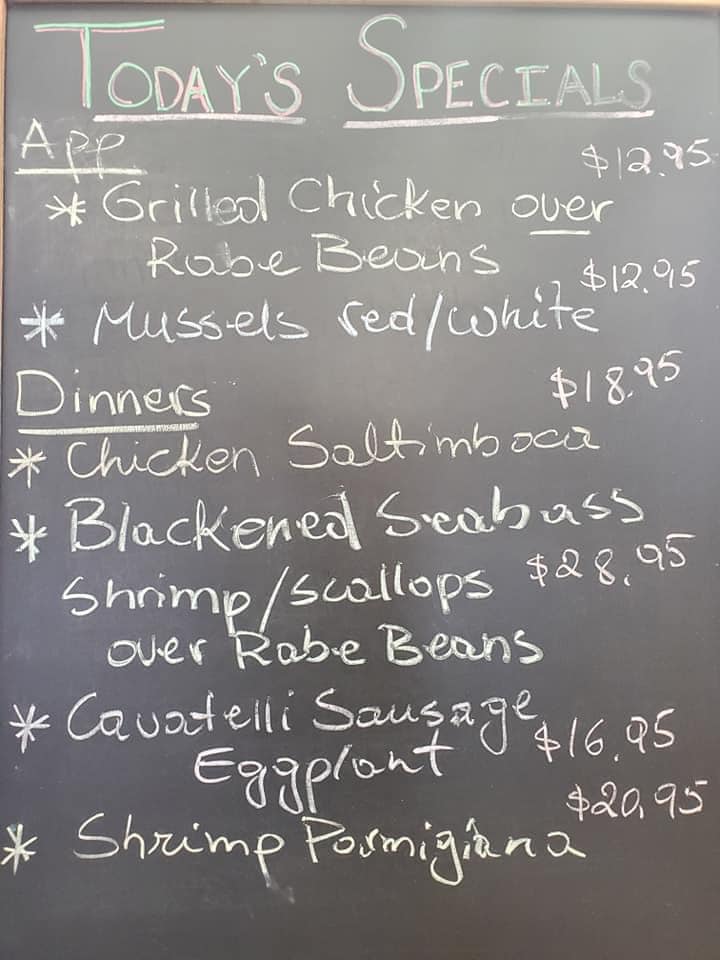 TODAY'S SPECIALS
App
$12.95
* Grilled Chicken over
Rabe Beans
$12.95
* Mussels red/white
Dinners
$18.95
* Chicken Saltimboca
* Blackened Seabass
Shrimp/scallops $28.95
over Rabe Beans
* Cavatelli Sausage
Eggplant $16.95
$20.95
* Shrimp Parmigiana